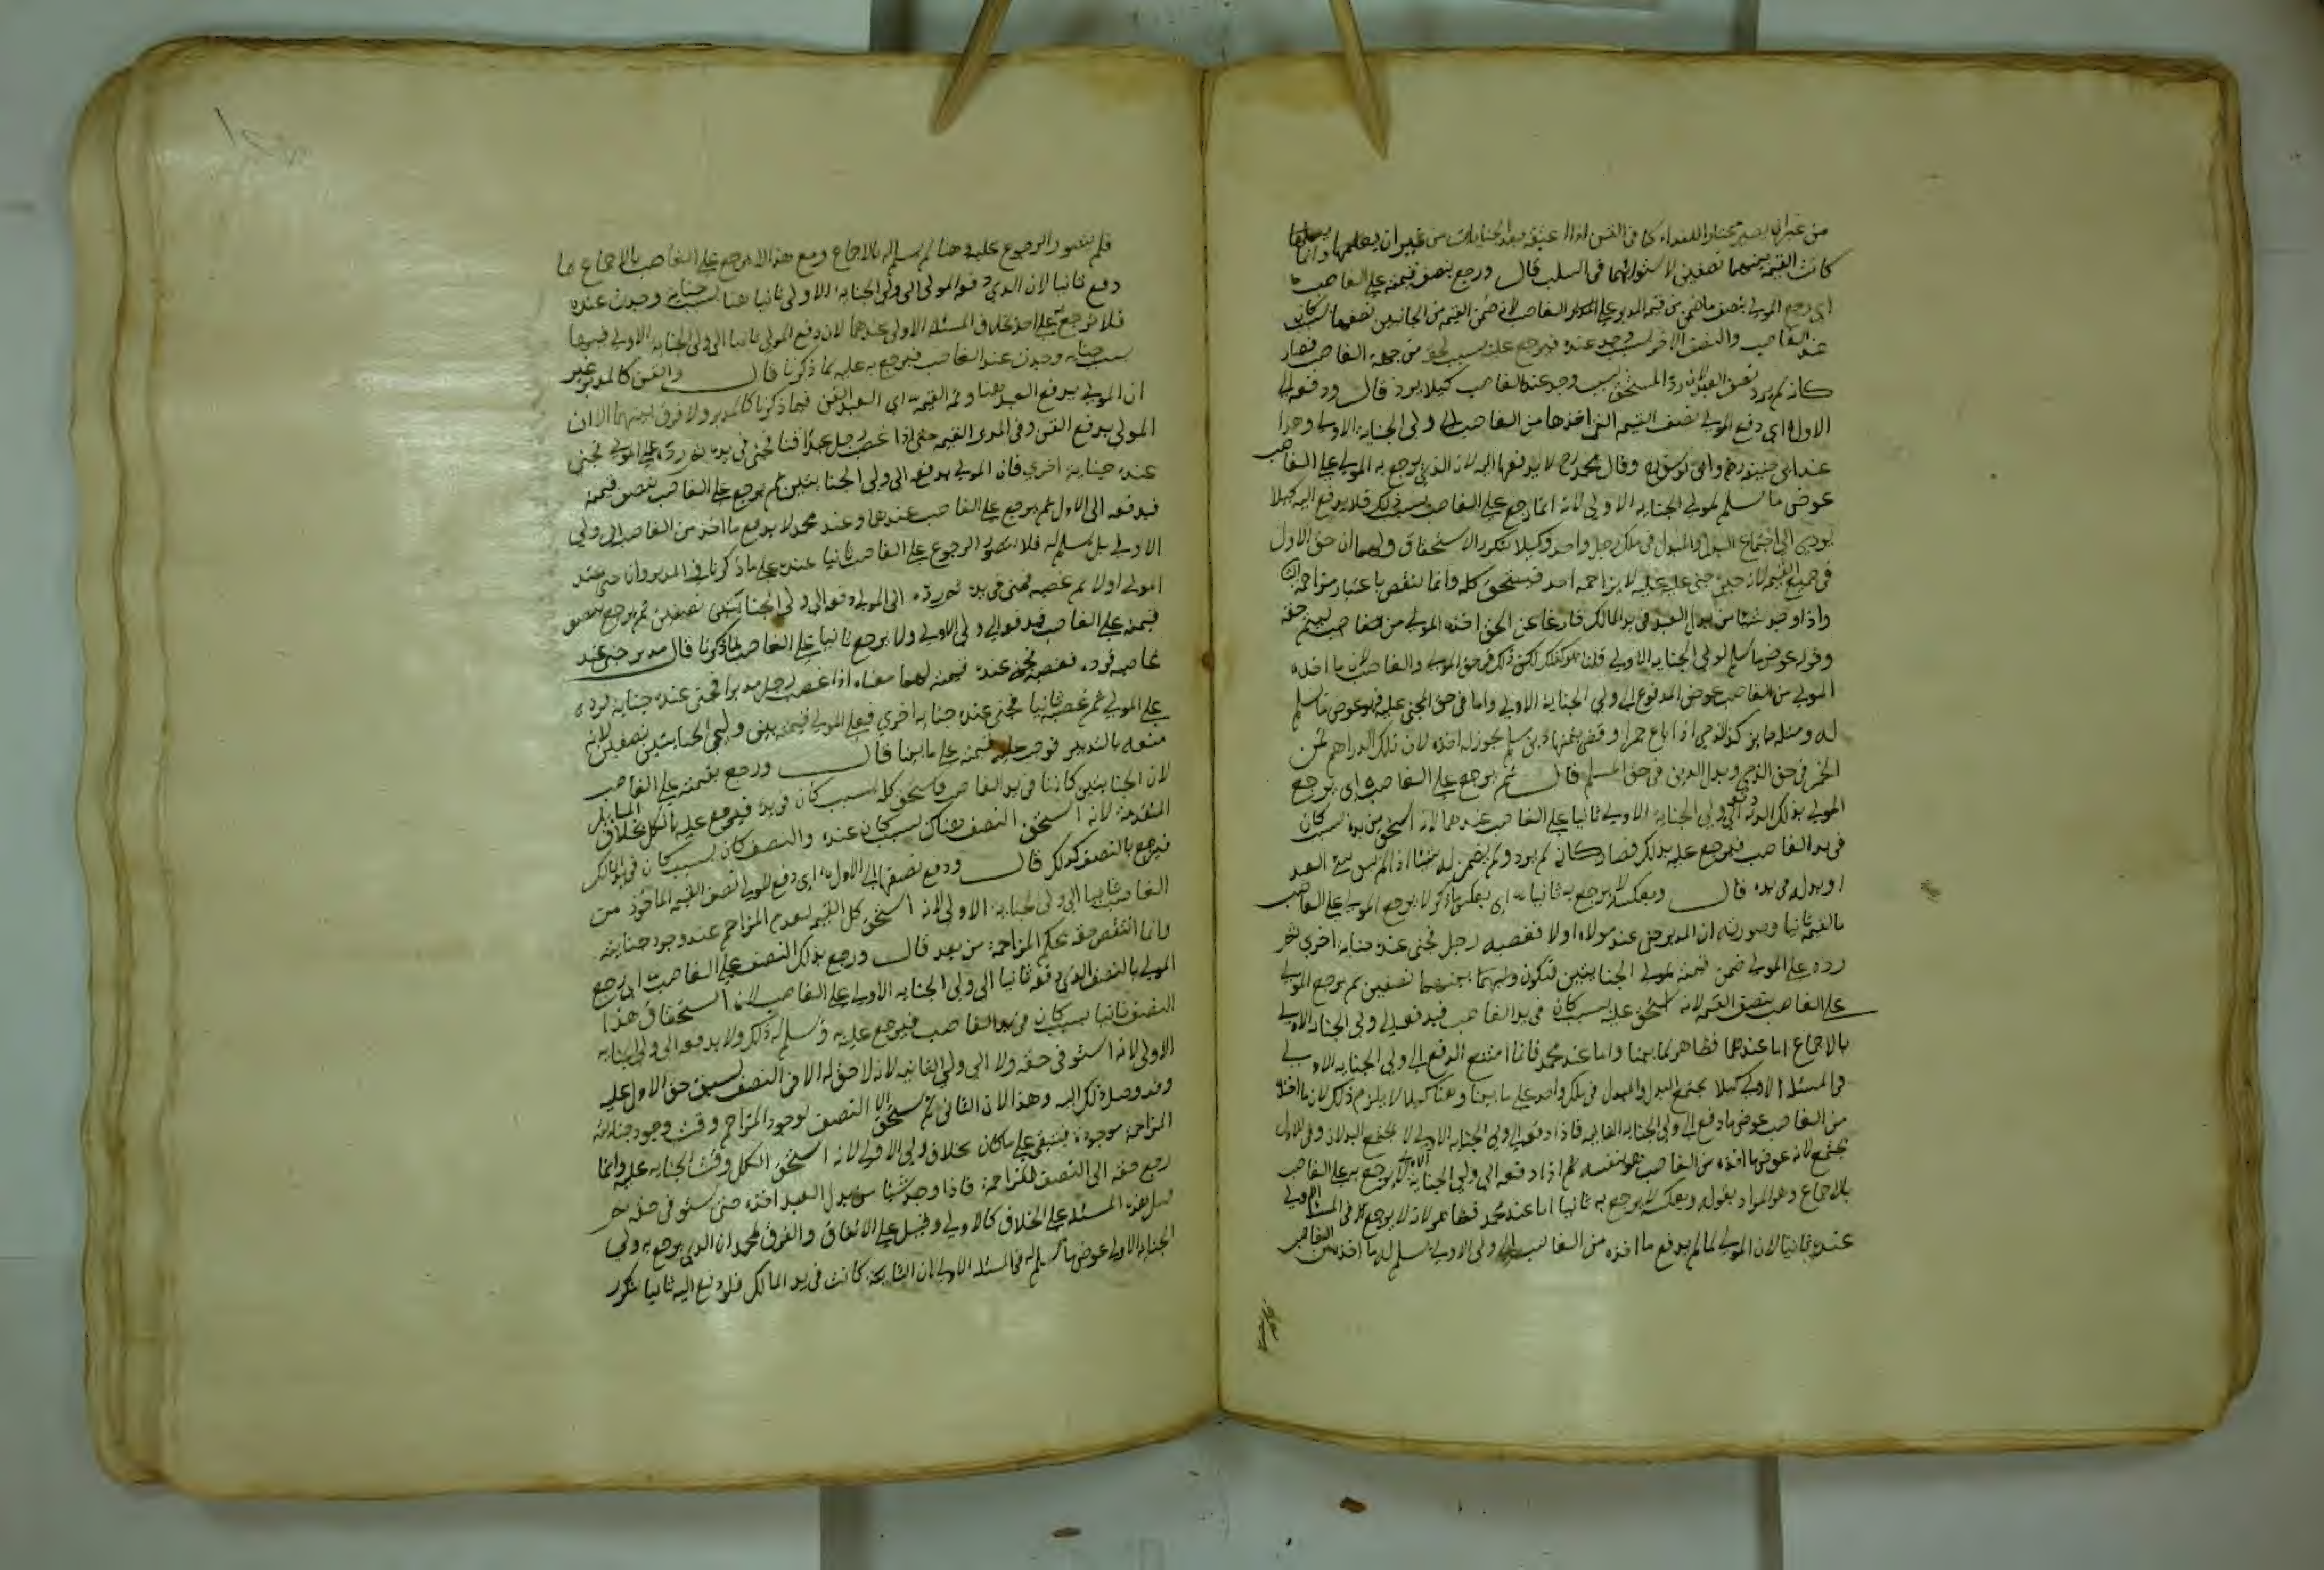 من غير ان يصير مختارا للفداء كما في القن اذا اعتقه بعد الجنايات من غير ان يعلمها وانما
كانت القيمة بينهما نصفين لاستوائهما في السبب قال ورجع بنصف قيمته على الغاصب
اي رجع المولى بنصف ما ضمن من قيمة المدبر على الغاصب لانه ضمن القيمة من الجانبين نصفها بسبب كان
عند الغاصب والنصف الاخر بسبب وجد عنده فيرجع عليه بسبب لحقه من جهة الغاصب فصار
كانه لم يرد نصف العبد لان رد المستحق بسبب وجد عند الغاصب كلا رد قال ودفعه الى
الاول اي دفع المولى نصف القيمة التي اخذها من الغاصب الى ولي الجناية الاولى وهذا
عند ابي حنيفة وابي يوسف وقال محمد رح لا يدفعها اليه لان الذي يرجع به المولى على الغاصب
عوض ما سلم لولي الجناية الاولى لانه انما رجع على الغاصب بسبب ذلك فلا يدفع اليه كيلا
يودي الى اجتماع البدل والمبدل في ملك رجل واحد وكيلا يتكرر الاستحقاق ولهما ان حق الاول
في جميع القيمة لانه حين جنى عليه لا يزاحمه احد فيستحق كله وانما ينقص باعتبار مزاحمة
واذا وجد شيئا من بدل العبد في يد المالك فارغا عن الحق اخذه المولى من الغاصب ليتم حقه
وقوله عوض ما سلم لولي الجناية الاولى قلنا ذلك في حق المولى والغاصب لان ما اخذه
المولى من الغاصب عوض المدفوع الى ولي الجناية الاولى واما في حق المجني عليه فهو عوض ما سلم
له ومثله جائز كالذمي اذا باع خمرا وقضى بثمنها دين مسلم يجوز له اخذه لان تلك الدراهم ثمن
الخمر في حق الذمي وبدل الدين في حق المسلم قال ثم يرجع على الغاصب اي يرجع
المولى بذلك الذي دفع الى ولي الجناية الاولى ثانيا على الغاصب عندهما لانه استحق من يده بسبب كان
في يد الغاصب فيرجع عليه بذلك فصار كانه لم يرد ولم يضمن له شيئا اذ لم يبق شيء العبد
او بدله في يده قال وبعكسه لا يرجع به ثانيا اي بعكس ما ذكر لا يرجع المولى على الغاصب
بالقيمة ثانيا وصورته ان المدبر جنى عند مولاه اولا فغصبه رجل فجنى عنده جناية اخرى ثم
رده على المولى ضمن قيمته لولي الجنايتين فتكون بينهما نصفين ثم يرجع المولى
على الغاصب بنصف القيمة لانه استحق عليه بسبب كان في يد الغاصب فيدفع الى ولي الجناية الاولى
بالاجماع اما عندهما فظاهر لما بينا واما عند محمد فانما امتنع الدفع الى ولي الجناية الاولى
في المسئلة الاولى كيلا يجتمع البدل والمبدل في ملك واحد على ما بينا وهنا لا يلزم ذلك لان ما اخذه
من الغاصب عوض ما دفع الى ولي الجناية الثانية فاذا دفعه الى ولي الجناية الاولى لا يجتمع البدلان وفي الاول
يجتمع لانه عوض ما اخذه من الغاصب هو بنفسه ثم اذا دفعه الى ولي الجناية الاولى لا يرجع به على الغاصب
بالاجماع وهو المراد بقوله وبعكسه لا يرجع به ثانيا اما عند محمد فظاهر لانه لا يرجع به في المسئلة الاولى
عنده ثانيا لان المولى لما لم يدفع ما اخذه من الغاصب الى ولي الاولى سلم له ما اخذ من الغاصب
فلم يتصور الرجوع عليه وهنا لم يسلم له بالاجماع ومع هذا لا يرجع على الغاصب بالاجماع بما
دفع ثانيا لان الذي دفعه المولى الى ولي الجناية الاولى ثانيا هنا بسبب جناية وجدت عنده
فلا يرجع على احد بخلاف المسئلة الاولى عندهما لان دفع المولى ثانيا الى ولي الجناية الاولى فيها
بسبب جناية وجدت عند الغاصب فيرجع به عليه لما ذكرنا قال والقن كالمدبر غير
ان المولى يدفع العبد هنا وثمه القيمة اي العبد القن فيما ذكرنا كالمدبر ولا فرق بينهما الا ان
المولى يدفع القن وفي المدبر القيمة حتى اذا غصب رجل عبدا قنا فجنى في يده ثم رده على المولى فجنى
عنده جناية اخرى فان المولى يدفعه الى ولي الجنايتين ثم يرجع على الغاصب بنصف قيمته
فيدفعه الى الاول ثم يرجع على الغاصب عندهما وعند محمد لا يدفع ما اخذ من الغاصب الى ولي
الاولى بل يسلم له فلا يتصور الرجوع على الغاصب ثانيا عنده على ما ذكرنا في المدبر وان جنى عند
المولى اولا ثم غصبه فجنى في يده ثم رده الى المولى دفعه الى ولي الجنايتين نصفين ثم يرجع بنصف
قيمته على الغاصب فيدفع الى ولي الاولى ولا يرجع ثانيا على الغاصب لما ذكرنا قال مدبر جنى عند
غاصبه فرده فغصبه فجنى عنده قيمته لهما معناه اذا غصب رجل مدبرا فجنى عنده جناية فرده
على المولى ثم غصبه ثانيا فجنى عنده جناية اخرى فعلى المولى قيمته بين وليي الجنايتين نصفين لانه
منعه بالتدبير فوجب عليه قيمته على ما بينا قال ورجع بقيمته على الغاصب
لان الجنايتين كانتا في يد الغاصب فاستحق كله بسبب كان في يده فيرجع عليه بالكل بخلاف المسائل
المتقدمة لانه استحق النصف هناك بسبب كان عنده والنصف كان بسبب كان في يد المالك
فيرجع بالنصف كذلك قال ودفع نصفها الى الاول اي دفع المولى نصف القيمة الماخوذ من
الغاصب ثانيا الى ولي الجناية الاولى لانه استحق كل القيمة لعدم المزاحم عند وجود جنايته
وانما انتقص حقه بحكم المزاحمة من بعد قال ورجع بذلك النصف على الغاصب اي يرجع
المولى بالنصف الذي دفعه ثانيا الى ولي الجناية الاولى على الغاصب لان استحقاق هذا
النصف ثانيا بسبب كان في يد الغاصب فيرجع عليه ويسلم له ذلك ولا يدفعه الى ولي الجناية
الاولى لانه استوفى حقه ولا الى ولي الثانية لانه لا حق له الا في النصف لسبق حق الاول عليه
وقد وصل ذلك اليه وهذا لان الثاني لم يستحق الا النصف لوجود المزاحم وقت وجود جنايته
المزاحمة موجودة فتبقى على ما كان بخلاف ولي الاولى لانه استحق الكل وقت الجناية عليه وانما
رجع حقه الى النصف للمزاحمة فاذا وجد شيئا من بدل العبد اخذه حتى يستوفي حقه ثم
قيل هذه المسئلة على الخلاف كالاولى وقيل على الاتفاق والفرق لمحمد ان الذي يرجع به ولي
الجناية الاولى عوض ما سلم له في المسئلة الاولى لان الثانية كانت في يد المالك فلو دفع اليه ثانيا تكرر